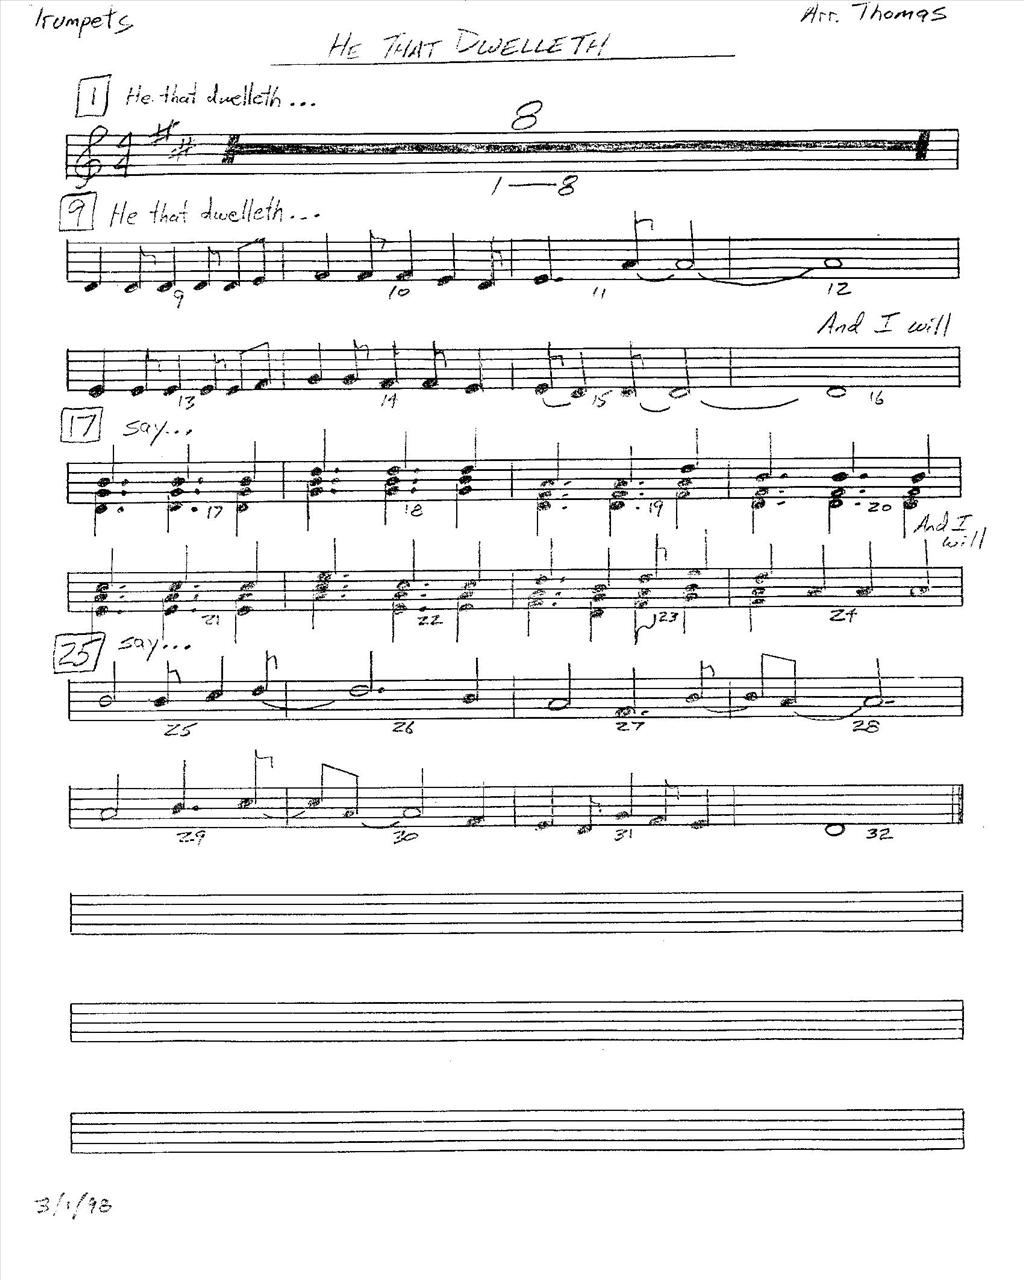 Trumpets
Arr. Thomas
HE THAT DWELLETH
1 He that dwelleth...
4
4
8
1—8
9 He that dwelleth...
9 10 11 12
And I will
13 14 15 16
17 say...
17 18 19 20
And I
will
21 22 23 24
25 say...
25 26 27 28
29 30 31 32
3/1/98